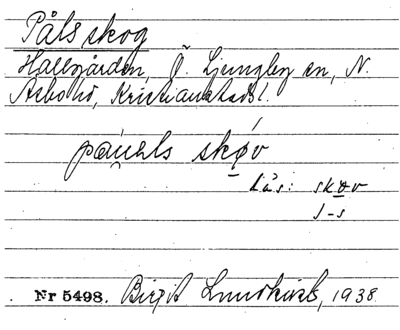 Påls skog
Hallsgården, Ö. Ljungby sn, N.
Åsbo hd, Kristianstads l.
skǿv
Läs: skøv
1-s
Nr 5498. Birgit Lundkvist, 1938.